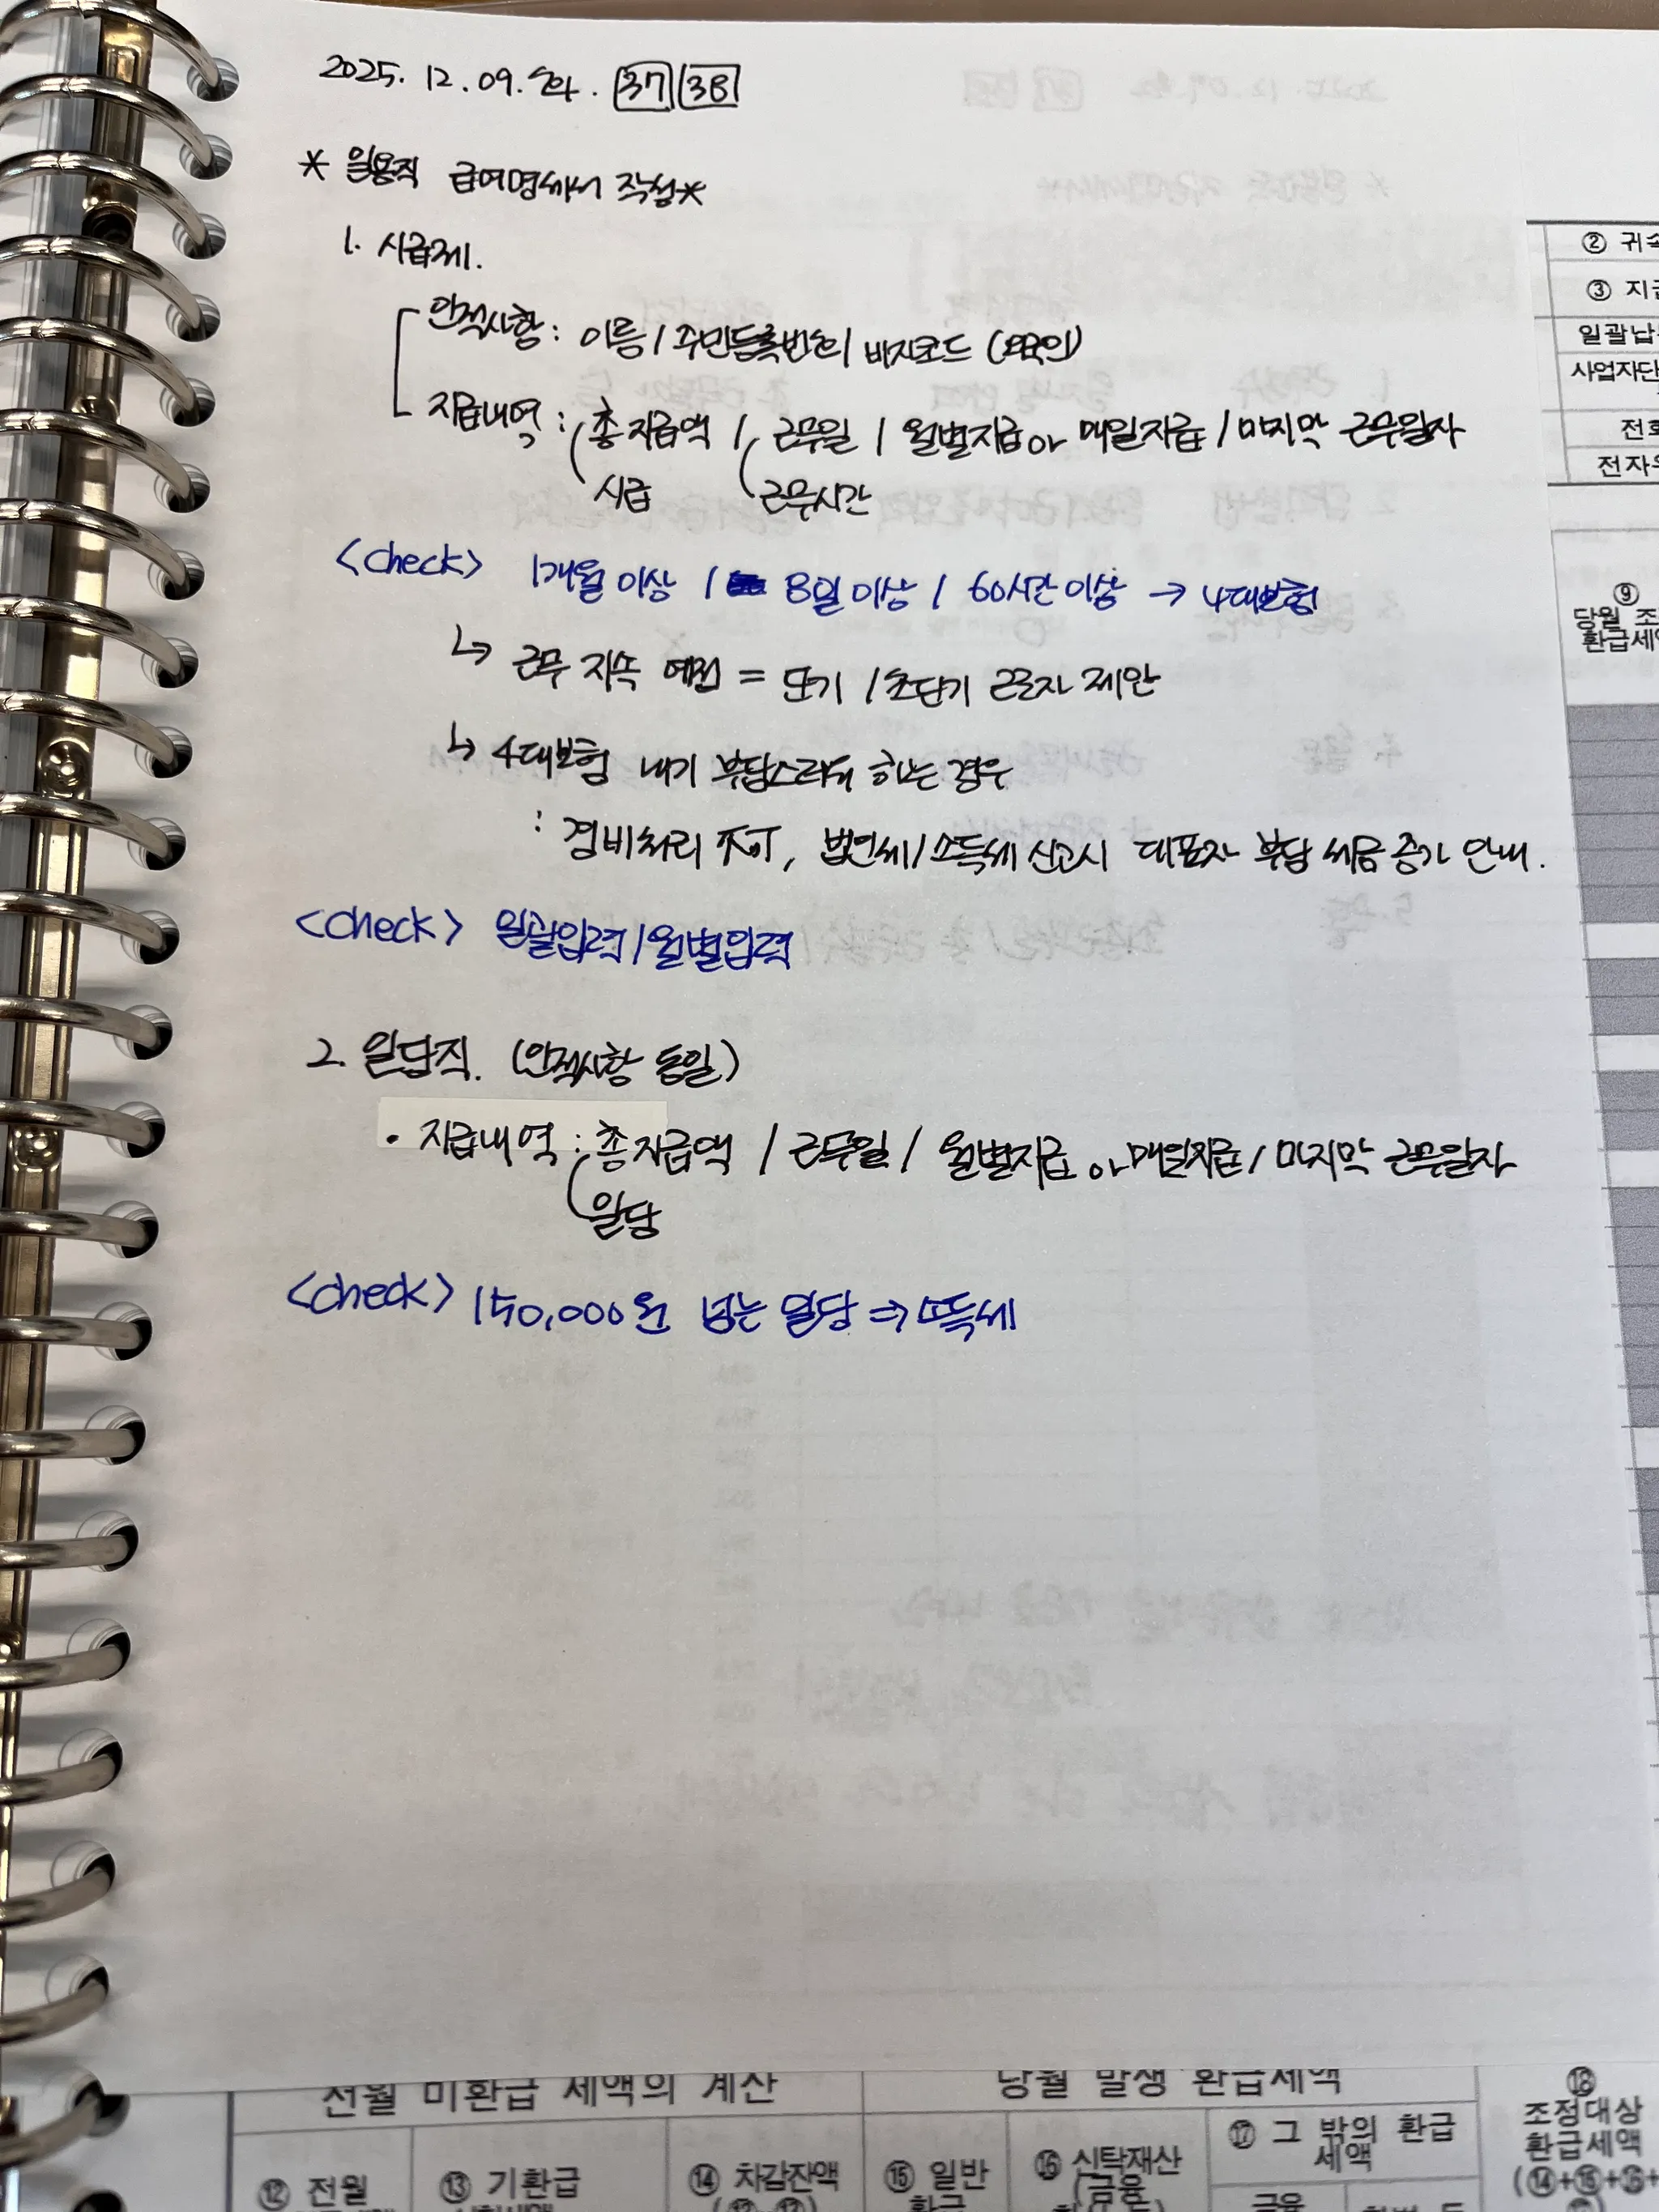 2025. 12. 09. 화. 37 38
* 일용직 급여명세서 작성*
1. 시급제.
인적사항 : 이름 / 주민등록번호 / 비자코드 (외국인)
지급내역 : 총 지급액 / 근무일 / 월별지급 or 매일지급 / 마지막 근무일자
시급 근무시간
<check> 1개월 이상 / 8일 이상 / 60시간 이상 → 4대보험
↳ 근무 지속 예정 = 단기 / 초단기 근로자 제안
↳ 4대보험 내기 부담스러워 하는 경우
: 경비처리 不可, 법인세/소득세 신고시 대표자 부담 세금 증가 안내.
<check> 일괄입력 / 월별입력
2. 일당직. (인적사항 동일)
• 지급내역 : 총지급액 / 근무일 / 월별지급 or 매일지급 / 마지막 근무일자
일당
<check> 150,000원 넘는 일당 ⇒ 소득세
② 귀속
③ 지급
일괄납
사업자단
전화
전자우
⑨
당월 조
환급세액
전월 미환급 세액의 계산
당월 발생 환급세액
⑫ 전월
⑬ 기환급
⑭ 차감잔액
⑮ 일반
환급
⑯ 신탁재산
(금융
⑰ 그 밖의 환급
세액
금융
⑱
조정대상
환급세액
(⑭+⑮+⑯+